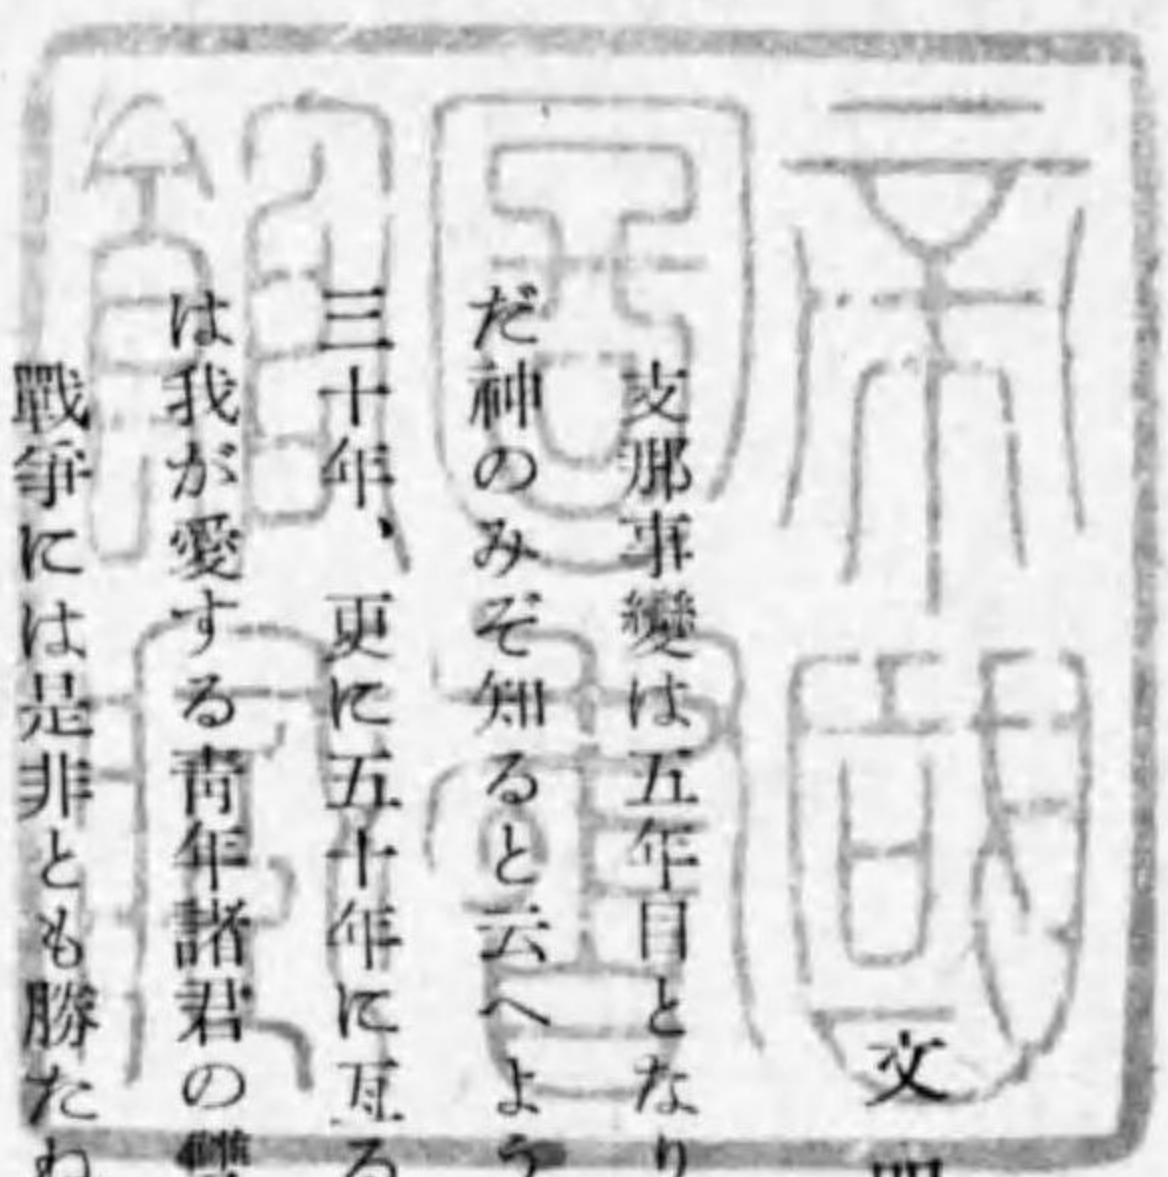 帝國
圖書
館藏
文
支那事變は五年目となり
だ神のみぞ知ると云へよう
三十年、更に五十年に亙る
は我が愛する靑年諸君の雙
戰爭には是非とも勝たね